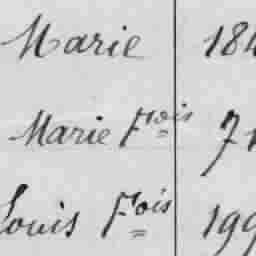 Marie 184
Marie Fçois 71
Louis Fçois 199